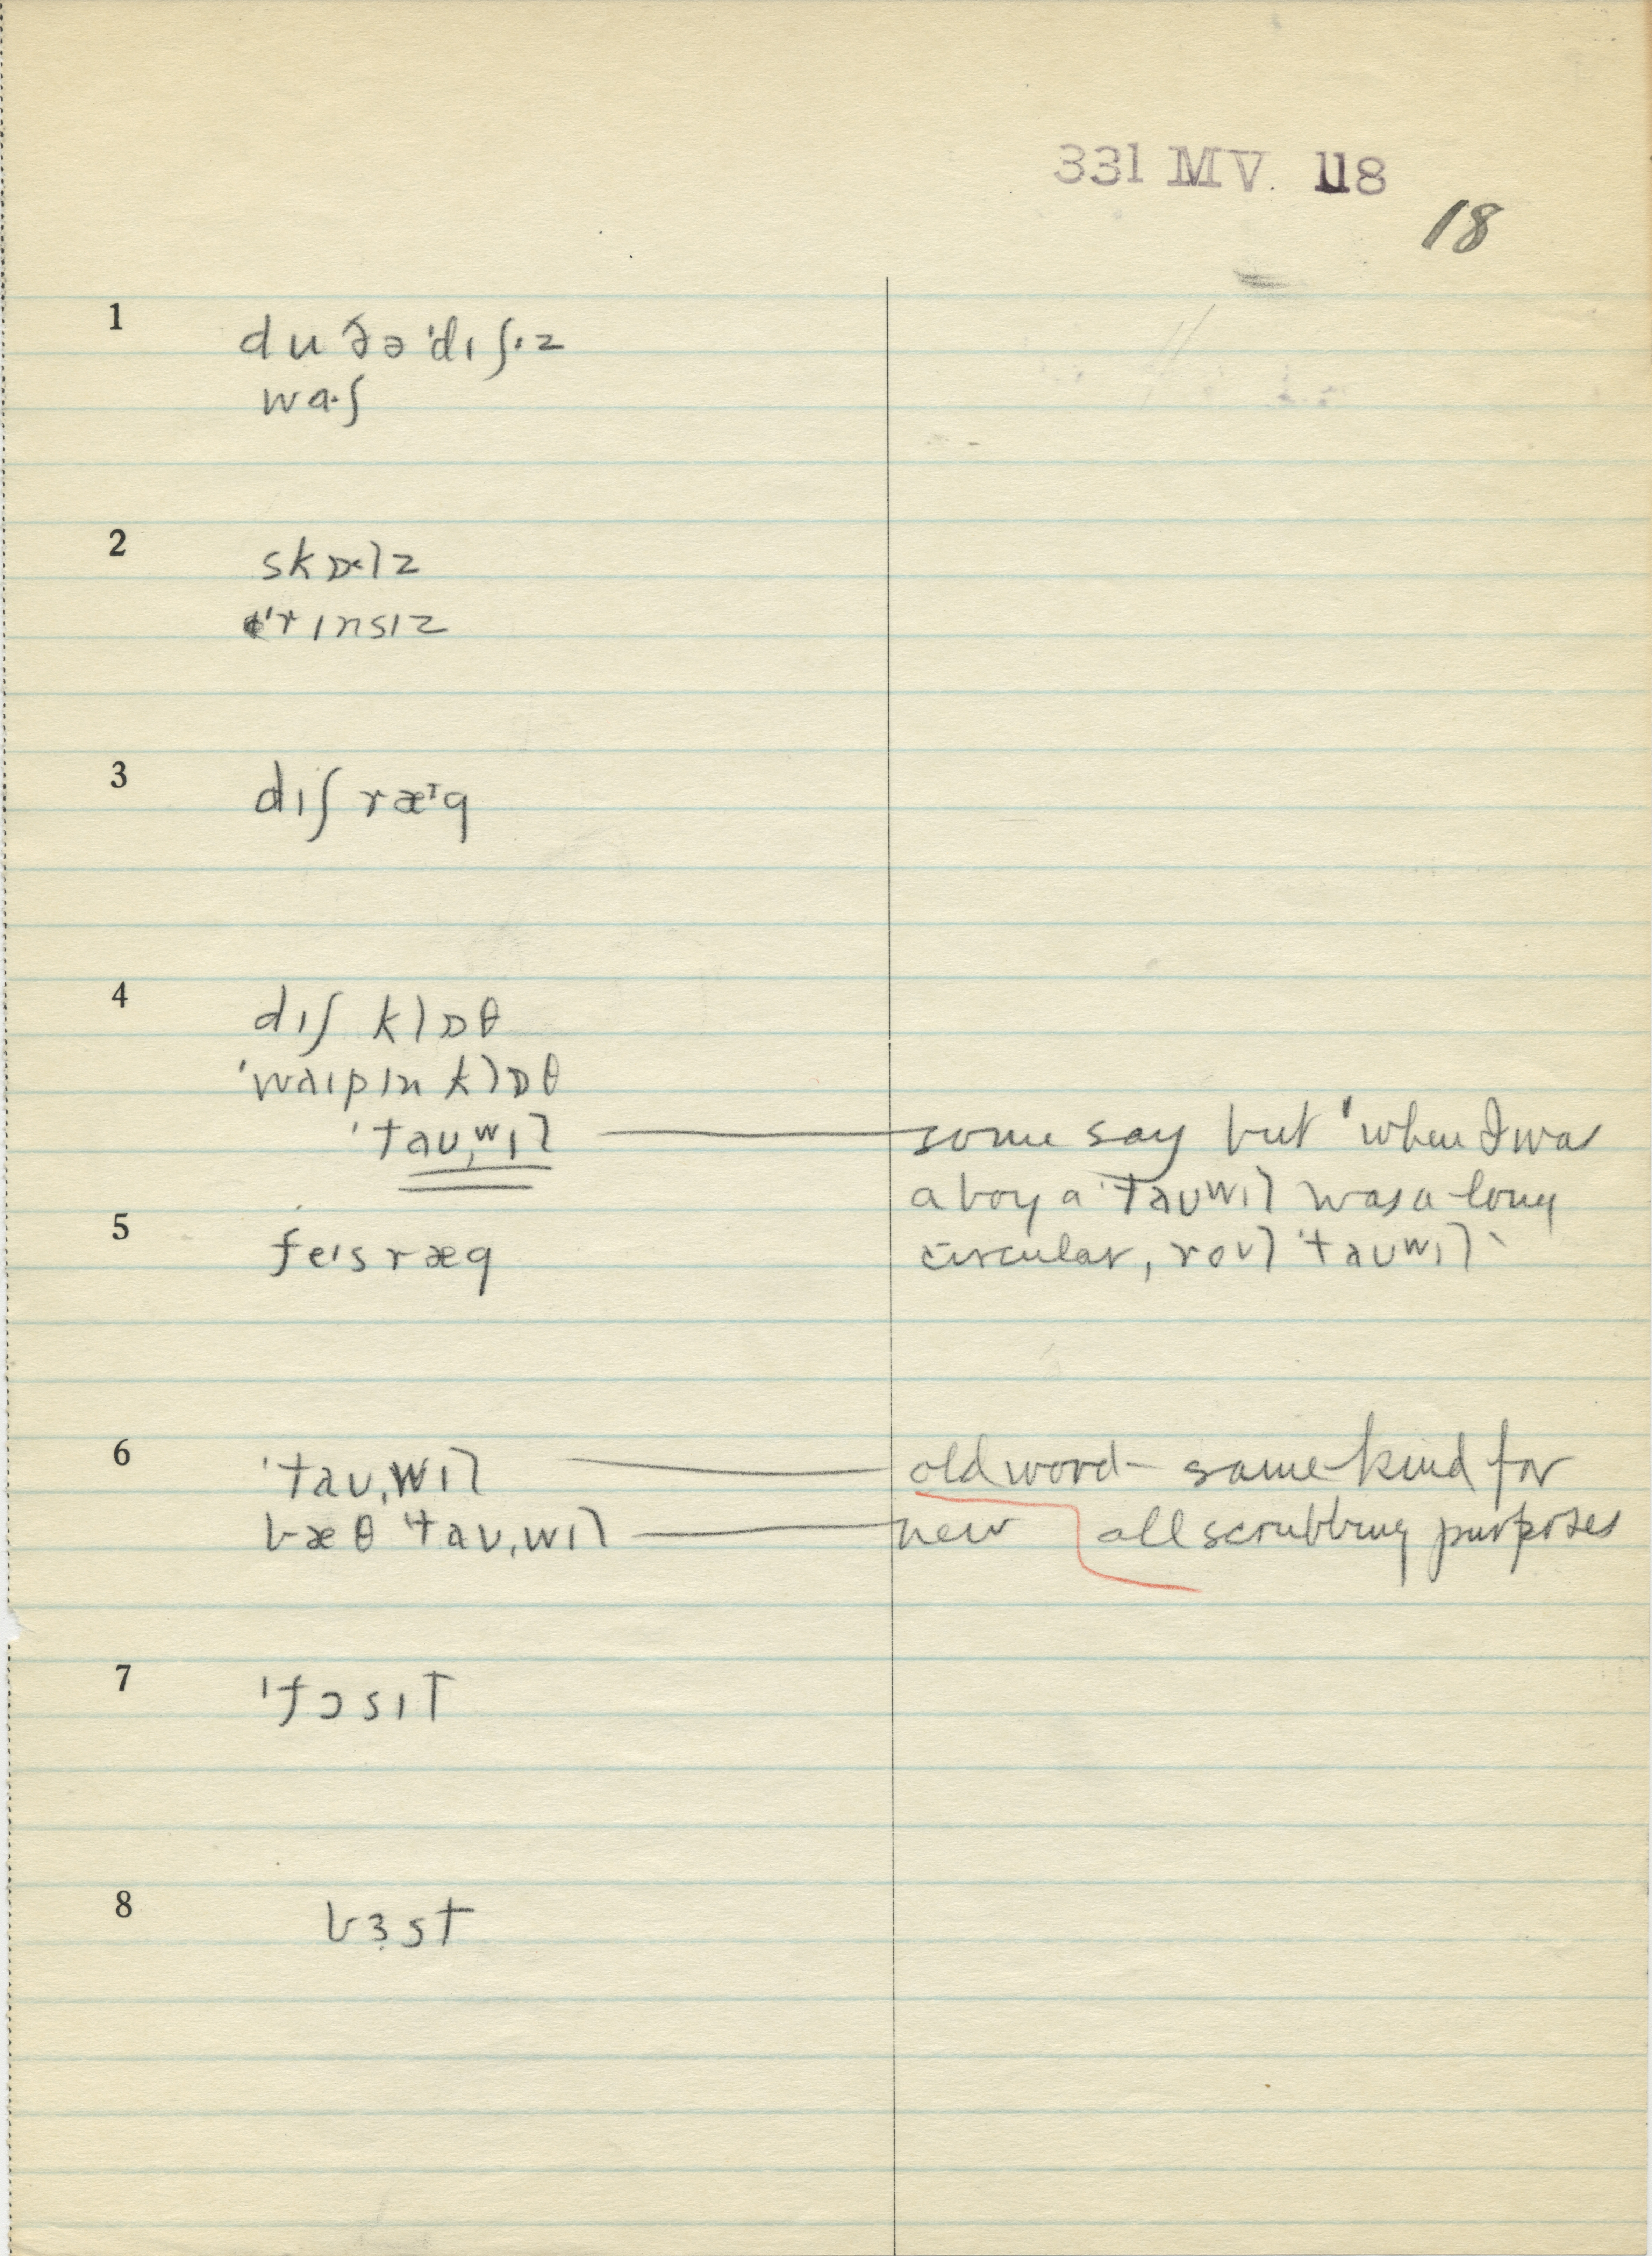 331 MV. 118
18
1 du ðə 'dɪʃɪz
wa·ʃ
2 skɒlz
'rɪnsɪz
3 dɪʃ ræᶦg
4 dɪʃ klɒθ
'waɪpɪn klɒθ
'taʊˌwɪl — some say but 'when I was
a boy a 'taʊwɪl was a long
circular, roʊl 'taʊwɪl'
5 feɪs ræg
6 'taʊˌwɪl — old word — same kind for
bæθ 'taʊˌwɪl — new all scrubbing purposes
7 'fɔsɪt
8 bɜst